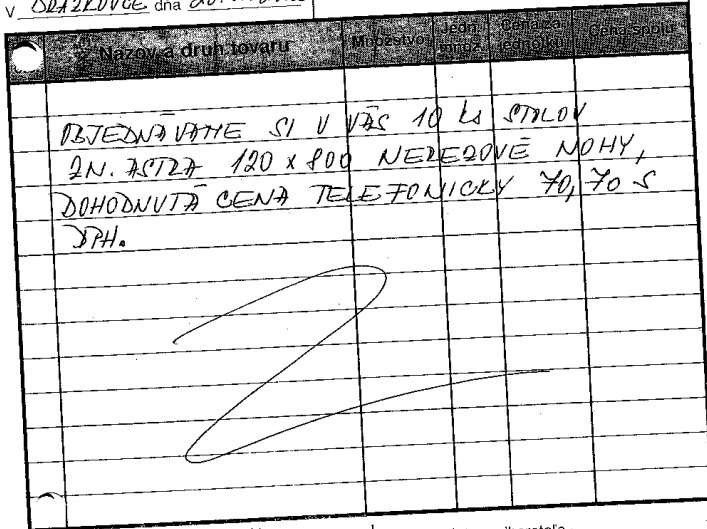 V DRAŽKOVCE dňa
Názov a druh tovaru Množstvo Jedn. množ. Cena za jednotku Cena spolu
OBJEDNÁVAME SI U VÁS 10 ks STOLOV
ZN. ASTRA 120 x 800 NEREZOVÉ NOHY,
DOHODNUTÁ CENA TELEFONICKY 70,70 S
DPH.